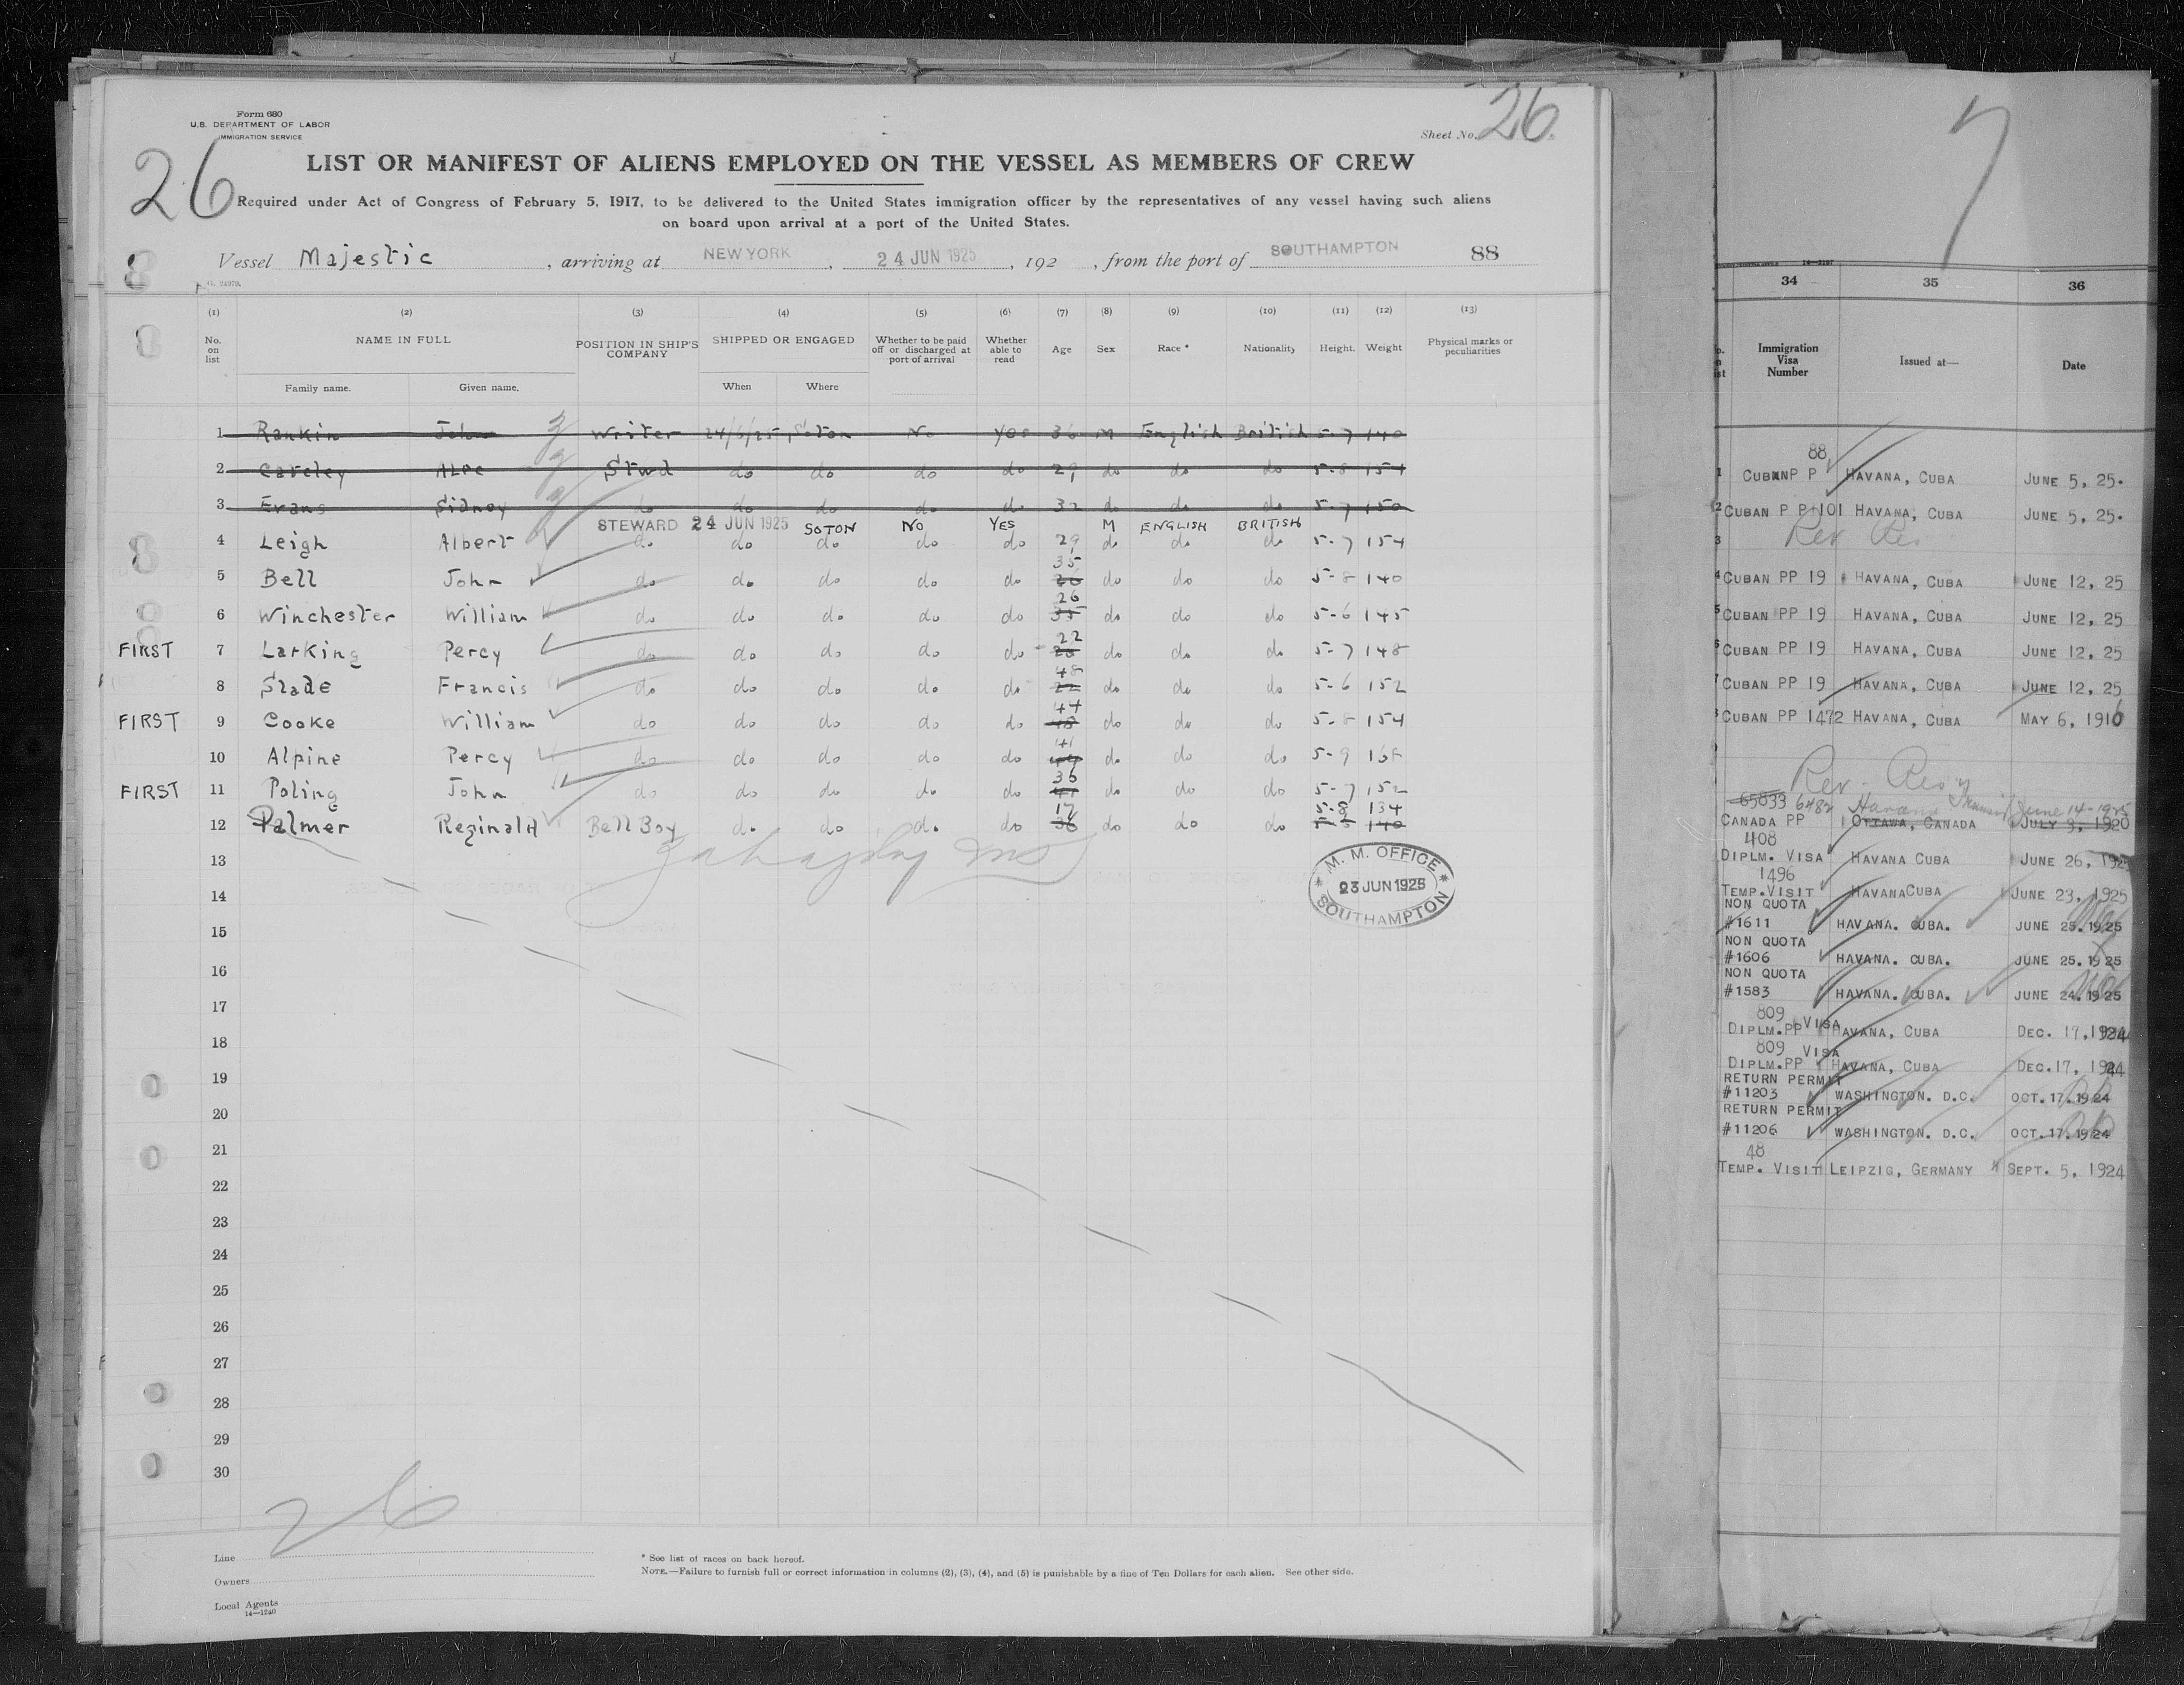 Form 680
U.S. DEPARTMENT OF LABOR
IMMIGRATION SERVICE
Sheet No. 26
26
LIST OR MANIFEST OF ALIENS EMPLOYED ON THE VESSEL AS MEMBERS OF CREW
Required under Act of Congress of February 5, 1917, to be delivered to the United States immigration officer by the representatives of any vessel having such aliens
on board upon arrival at a port of the United States.
Vessel Majestic, arriving at NEW YORK, 24 JUN 1925, 192 , from the port of SOUTHAMPTON 88
(1) (2) (3) (4) (5) (6) (7) (8) (9) (10) (11) (12) (13)
No. on list NAME IN FULL POSITION IN SHIP'S COMPANY SHIPPED OR ENGAGED Whether to be paid off or discharged at port of arrival Whether able to read Age Sex Race * Nationality Height. Weight Physical marks or peculiarities
Family name. Given name. When Where
1 Rankin John Writer 24/6/25 Soton No Yes 36 M English British 5-7 140
2 Stwd do do do do 29 do do do 5-8 154
3 Evans Sidney do do do do do 32 do do do 5-7 150
STEWARD 24 JUN 1925 SOTON NO YES M ENGLISH BRITISH
4 Leigh Albert do do do do do 29 do do do 5-7 154
5 Bell John do do do do do 35 26 do do do 5-8 140
6 Winchester William do do do do do 26 35 do do do 5-6 145
FIRST 7 Larking Percy do do do do do 22 26 do do do 5-7 148
8 Slade Francis do do do do do 48 22 do do do 5-6 152
FIRST 9 Cooke William do do do do do 44 48 do do do 5-8 154
10 Alpine Percy do do do do do 41 44 do do do 5-9 168
FIRST 11 Poling John do do do do do 36 41 do do do 5-7 152
12 Palmer Reginald Bell Boy do do do do 17 36 do do do 5-8 134 5-5 140
13
14
15
16
17
18
19
20
21
22
23
24
25
26
27
28
29
30
M. M. OFFICE
23 JUN 1925
SOUTHAMPTON
26
Line
Owners
Local Agents
14—1240
* See list of races on back hereof.
NOTE.—Failure to furnish full or correct information in columns (2), (3), (4), and (5) is punishable by a fine of Ten Dollars for each alien. See other side.
7
34 35 36
Immigration Visa Number Issued at— Date
88
CUBAN P P HAVANA, CUBA JUNE 5, 25.
CUBAN P P 101 HAVANA, CUBA JUNE 5, 25.
CUBAN PP 19 HAVANA, CUBA JUNE 12, 25
CUBAN PP 19 HAVANA, CUBA JUNE 12, 25
CUBAN PP 19 HAVANA, CUBA JUNE 12, 25
CUBAN PP 19 HAVANA, CUBA JUNE 12, 25
CUBAN PP 1472 HAVANA, CUBA MAY 6, 1916
65833 6482 Havana Transit June 14-1925
CANADA PP OTTAWA, CANADA JULY 9, 1920
408
DIPLM. VISA HAVANA CUBA JUNE 26, 1925
1496
TEMP. VISIT HAVANA CUBA JUNE 23, 1925
NON QUOTA
#1611 HAVANA. CUBA. JUNE 25. 1925
NON QUOTA
#1606 HAVANA. CUBA. JUNE 25. 1925
NON QUOTA
#1583 HAVANA. CUBA. JUNE 24. 1925
809 VISA
DIPLM. PP HAVANA, CUBA DEC. 17, 1924
809 VISA
DIPLM. PP HAVANA, CUBA DEC. 17, 1924
RETURN PERMIT
#11203 WASHINGTON. D.C. OCT. 17. 1924
RETURN PERMIT
#11206 WASHINGTON. D.C. OCT. 17. 1924
48
TEMP. VISIT LEIPZIG, GERMANY SEPT. 5, 1924